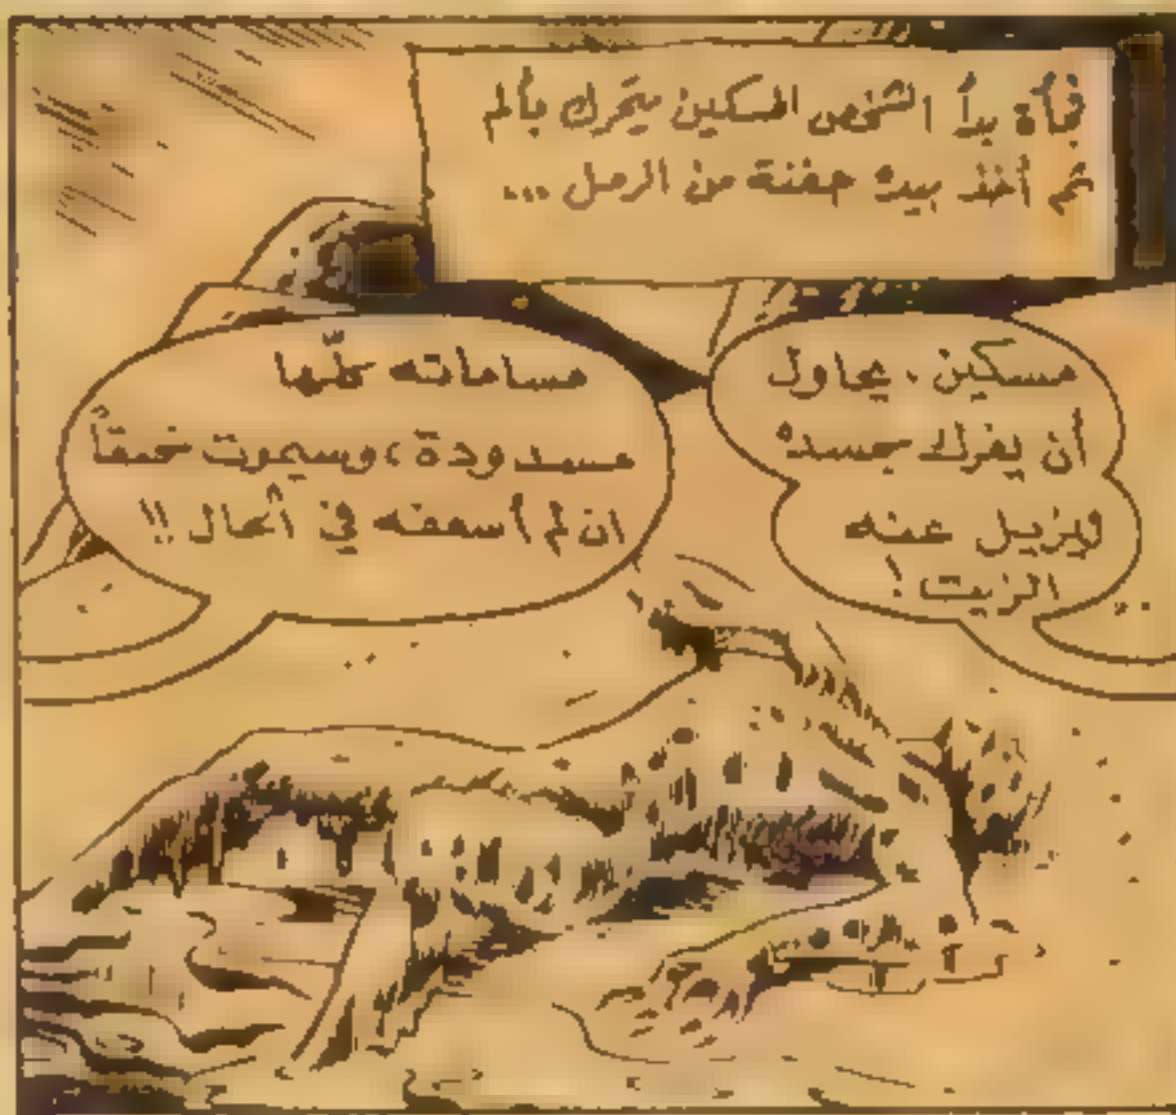 فجأة بدأ الشخص المسكين يتحرك بألم
ثم أخذ بيده حفنة من الرمل ...
مسكين، يحاول
أن يفرك جسده
ويزيل عنه
الزيت!
مساماته كلّها
مسدودة، وسيموت خنقاً
ان لم أسعفه في الحال!!